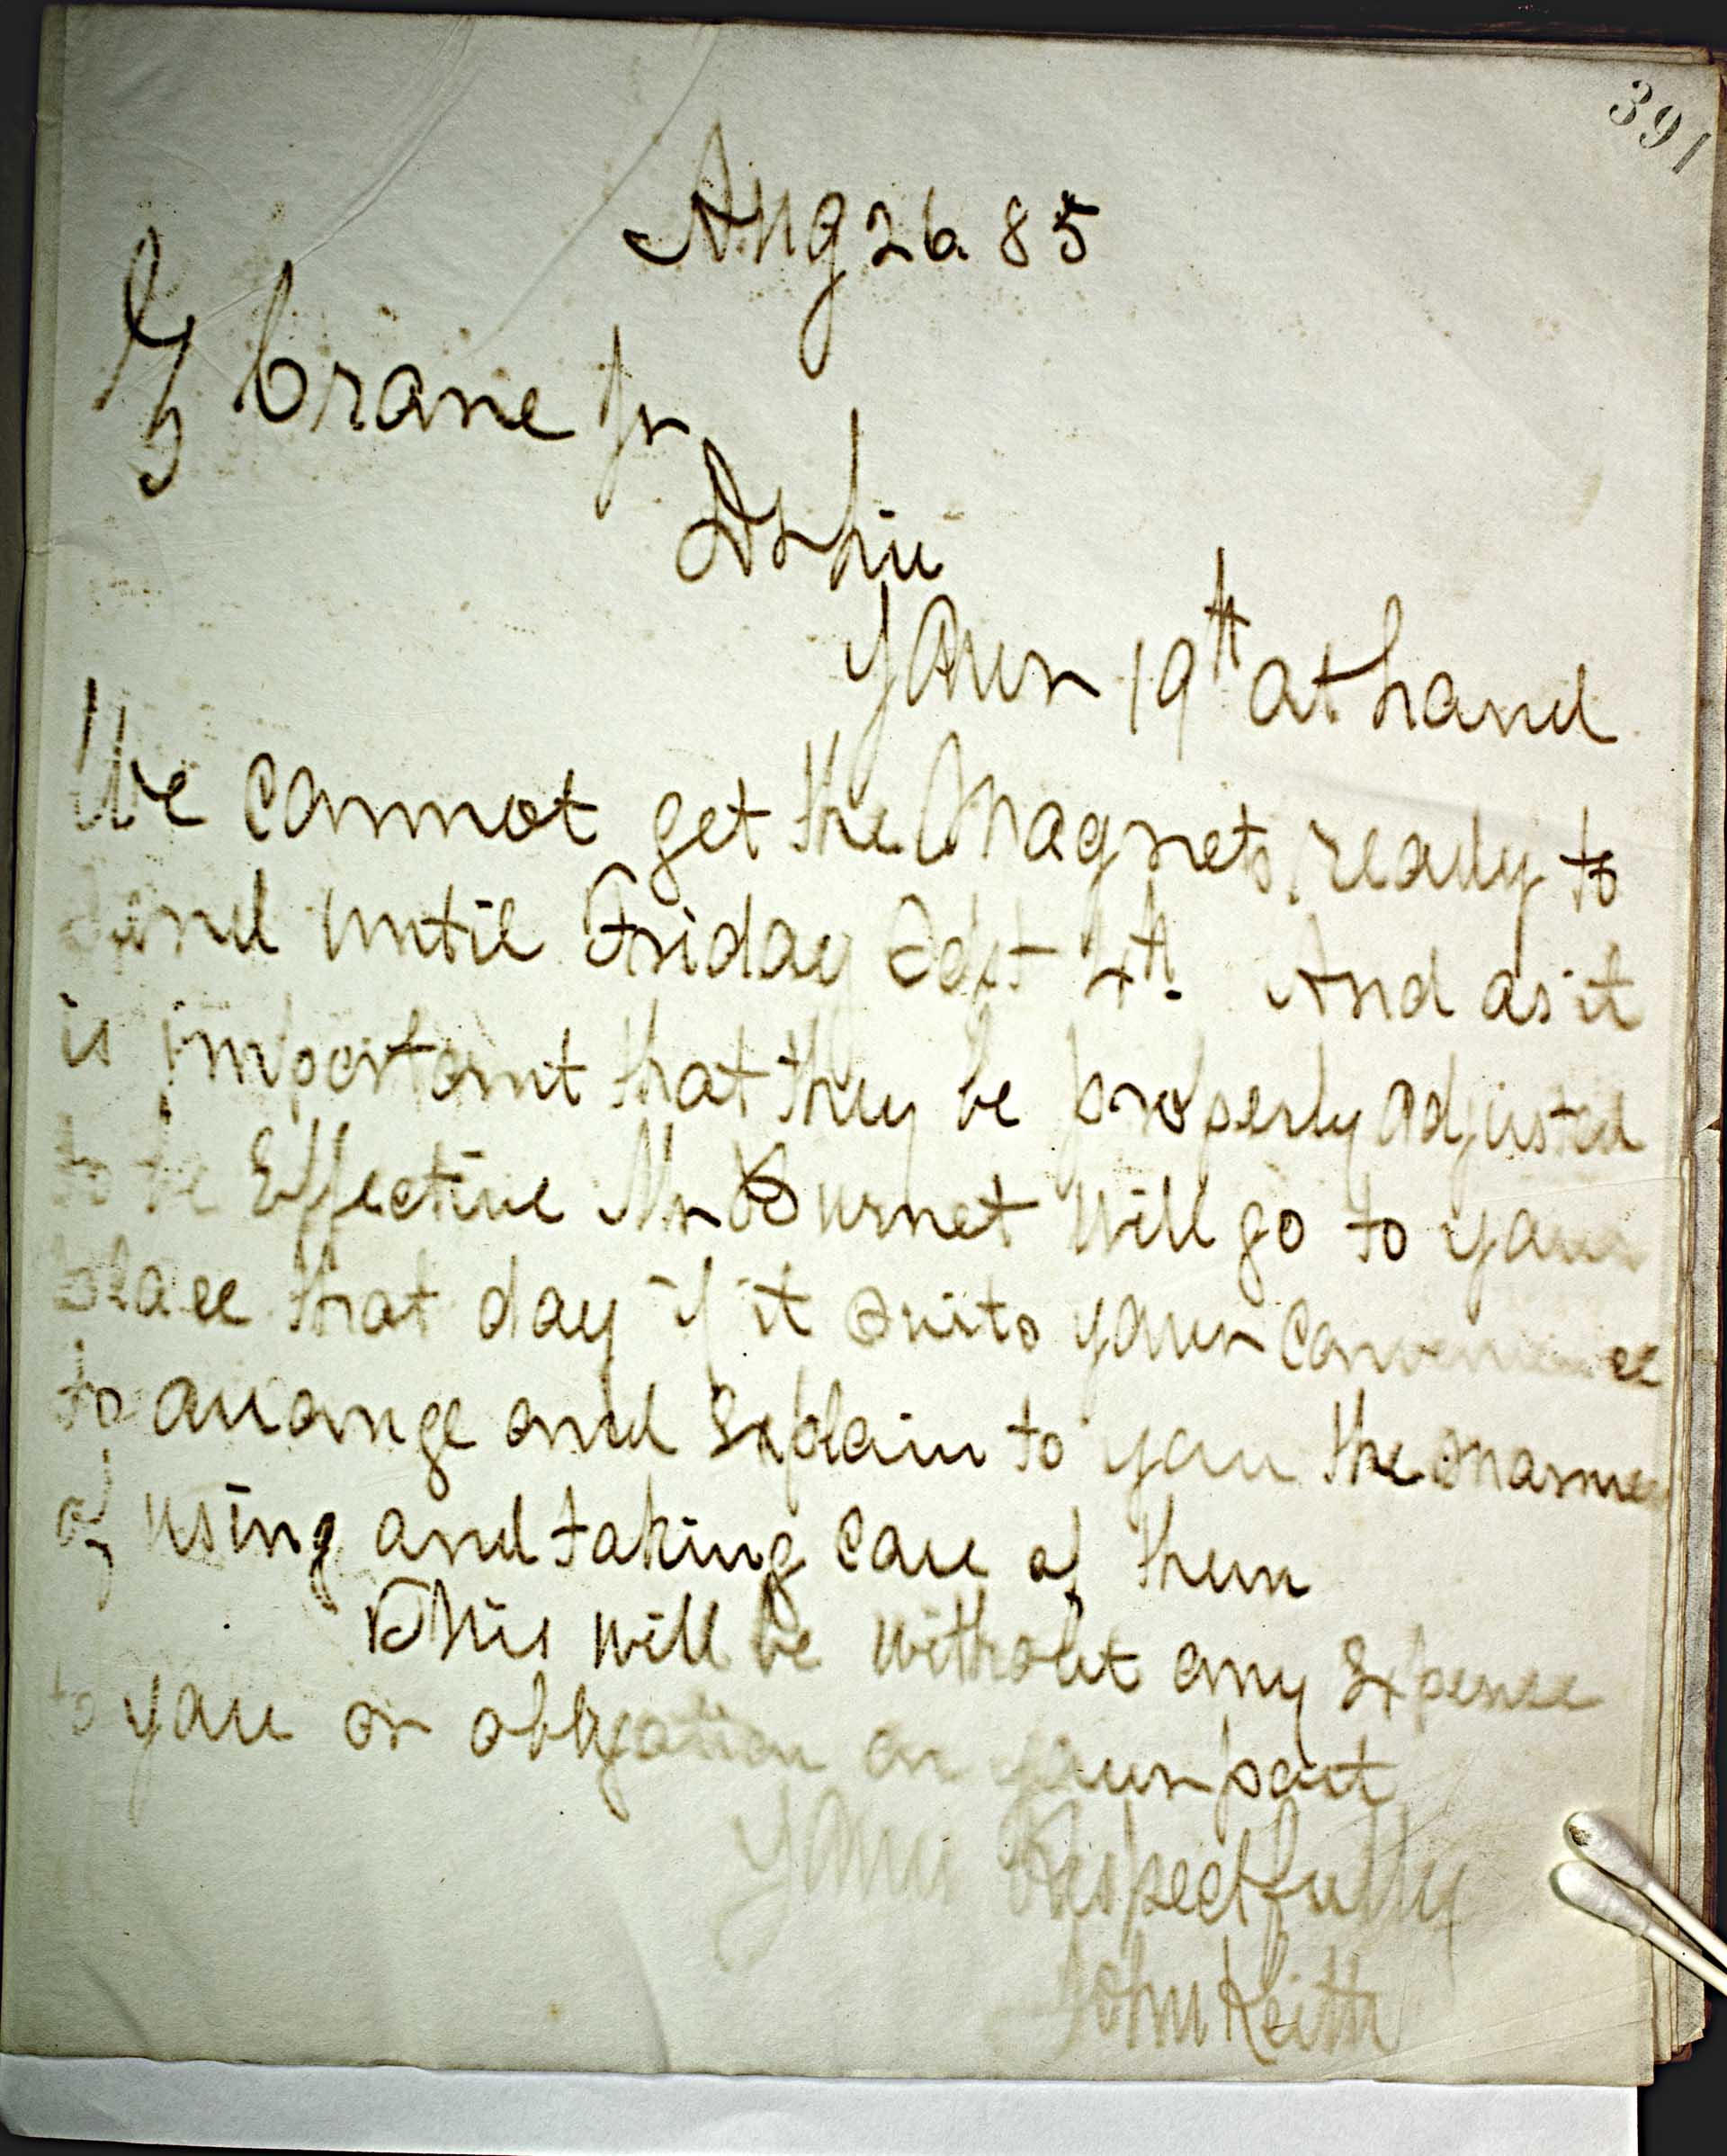 391
Aug 26 85
Z Crane Jr
D Sir
Your 19th at hand
We cannot get the Magnets ready to
send until Friday Sept 4th. And as it
is important that they be properly adjusted
to be Effective Mr Burnet will go to your
place that day if it suits your convenience
to arrange and Explain to you the manner
of using and taking care of them
This will be without any Expense
to you or obligation on your part
Yours Respectfully
John Keith